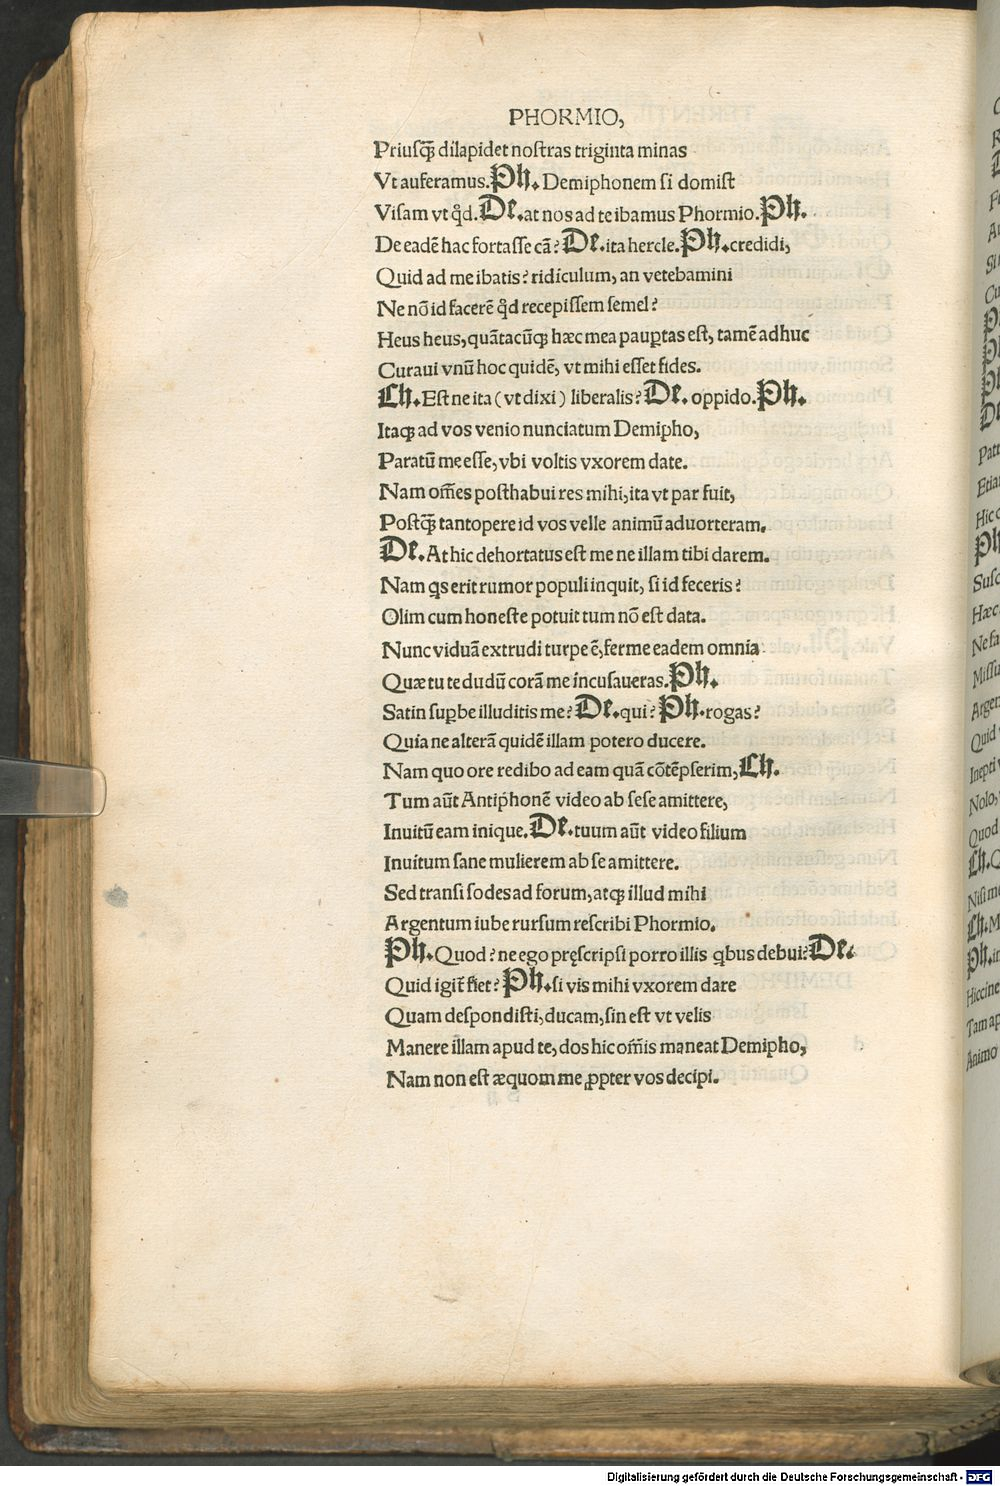 PHORMIO,
Priusq̃ꝫ dilapidet nostras triginta minas
Vt auferamus. Ph. Demiphonem si domist
Visam vt qd̓. De. at nos ad te ibamus Phormio. Ph.
De eadē hac fortasse cā? De. ita hercle. Ph. credidi,
Quid ad me ibatis? ridiculum, an vetebamini
Ne nō id facerē qd̓ recepissem semel?
Heus heus, quātacūqꝫ hæc mea paup̱tas est, tamē adhuc
Curaui vnū hoc quidē, vt mihi esset fides.
Ch. Est ne ita (vt dixi) liberalis? De. oppido. Ph.
Itaqꝫ ad vos venio nunciatum Demipho,
Paratū me esse, vbi voltis vxorem date.
Nam om̄es posthabui res mihi, ita vt par fuit,
Postq̃ꝫ tantopere id vos velle animū aduorteram.
De. At hic dehortatus est me ne illam tibi darem.
Nam qs erit rumor populi inquit, si id feceris?
Olim cum honeste potuit tum nō est data.
Nunc viduā extrudi turpe ē, ferme eadem omnia
Quæ tu te dudū corā me incusaueras. Ph.
Satin sup̱be illuditis me? De. qui? Ph. rogas?
Quia ne alterā quidē illam potero ducere.
Nam quo ore redibo ad eam quā cōtēpserim, Ch.
Tum aūt Antiphonē video ab sese amittere,
Inuitū eam inique. De. tuum aūt video filium
Inuitum sane mulierem ab se amittere.
Sed transi sodes ad forum, atqꝫ illud mihi
Argentum iube rursum rescribi Phormio.
Ph. Quod? ne ego pręscripsi porro illis qbus debui? De.
Quid igit̄ fiet? Ph. si vis mihi vxorem dare
Quam despondisti, ducam, sin est vt velis
Manere illam apud te, dos hic om̄is maneat Demipho,
Nam non est æquom me ꝓpter vos decipi.
Digitalisierung gefördert durch die Deutsche Forschungsgemeinschaft - DFG